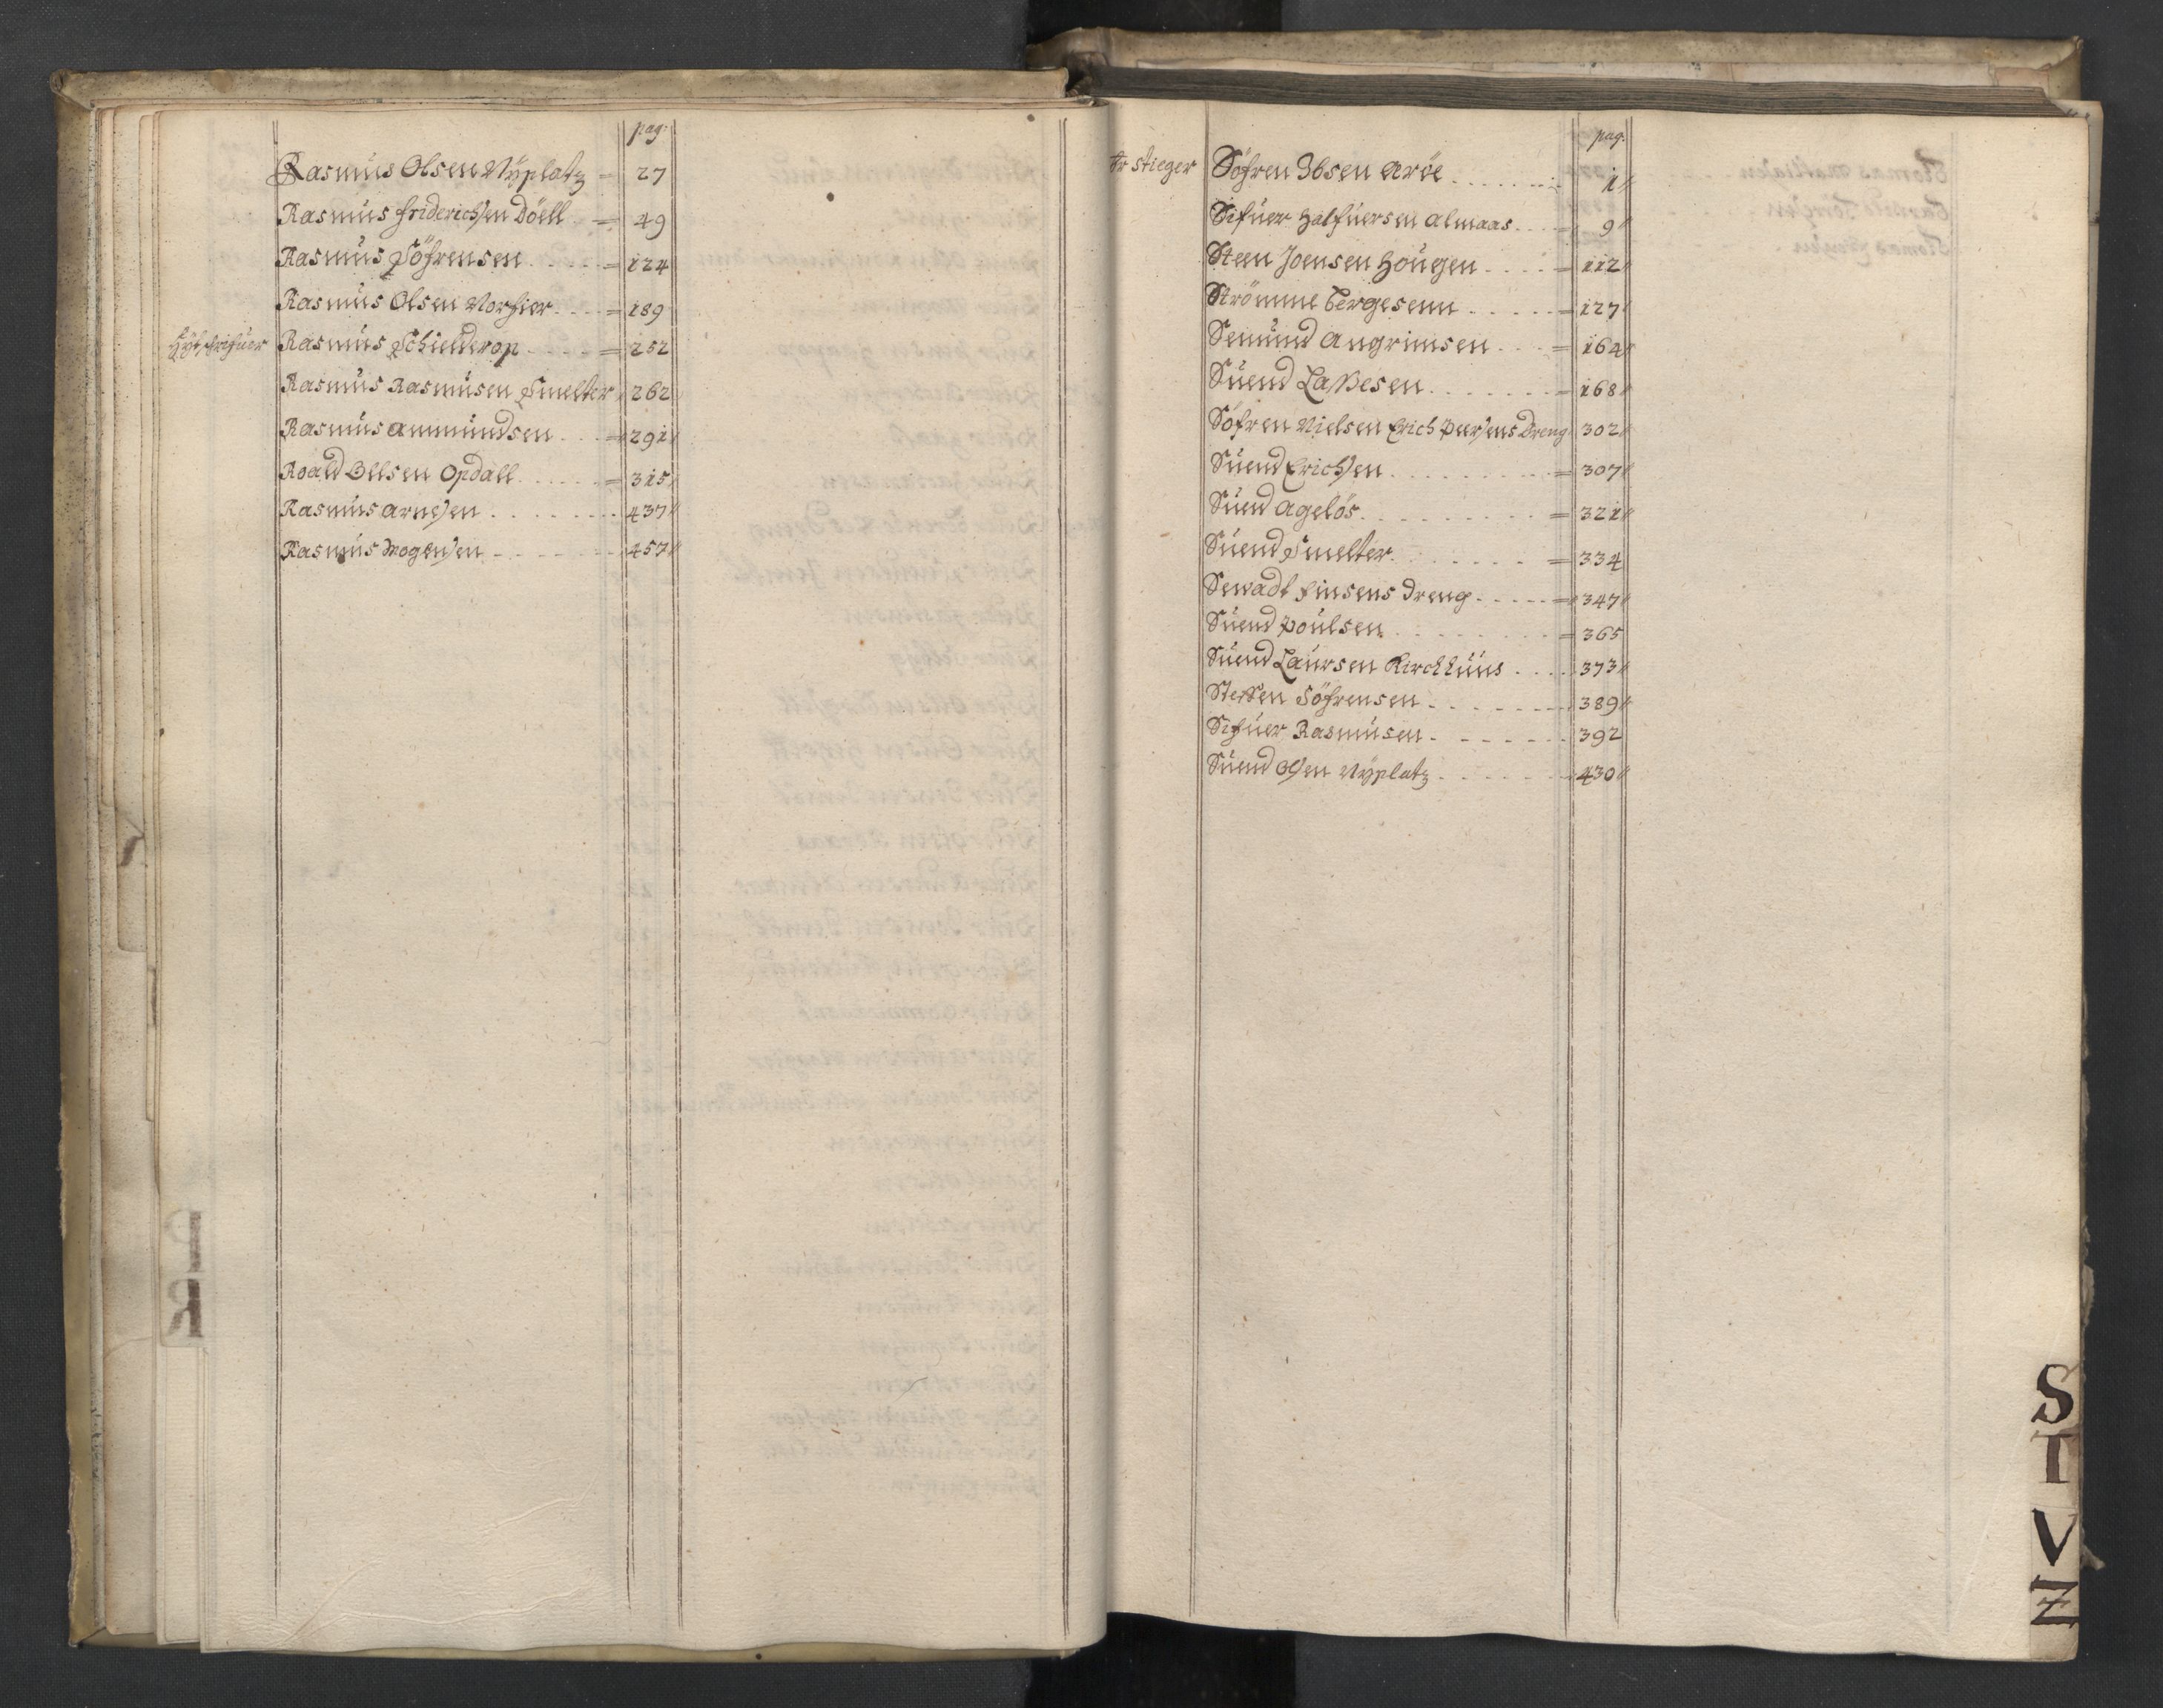 pag:
Rasmus Olsen Nÿplatz = 27
Rasmus friderichsen Döell = 49
Rasmus Söfrensen = 124
Rasmus Olsen Norfier = 189
Rasmus Schielderop = 252
Rasmus Rasmusen Smelter 262
Rasmus Ammundsen = 291
Roald Ollsen Opdall = 315
Rasmus Arnesen 437
Rasmus Mogensen 457
R
pag:
Hr Stieger Söfren Ibsen Aröe 1
Sifuer Halfuersen Almaas 9
Steen Joensen Hougen = 112
Strömme Bergesenn = 127
Semund Angrimsen = 164
Suend Lassesen = 168
Söfren Nielsen Erich Peersens Dreng 302
Suend Erichsen = 307
Suend Ageløs = 321
Suend Smelter = 334
Sewadt finsens Dreng = 347
Suend Poulsen = 365
Suend Laursen Kirchhuus 373
Steffen Söfrensen 389
Sifuer Rasmusen 392
Suend Olsen Nÿplatz 430
S
T
V
Z